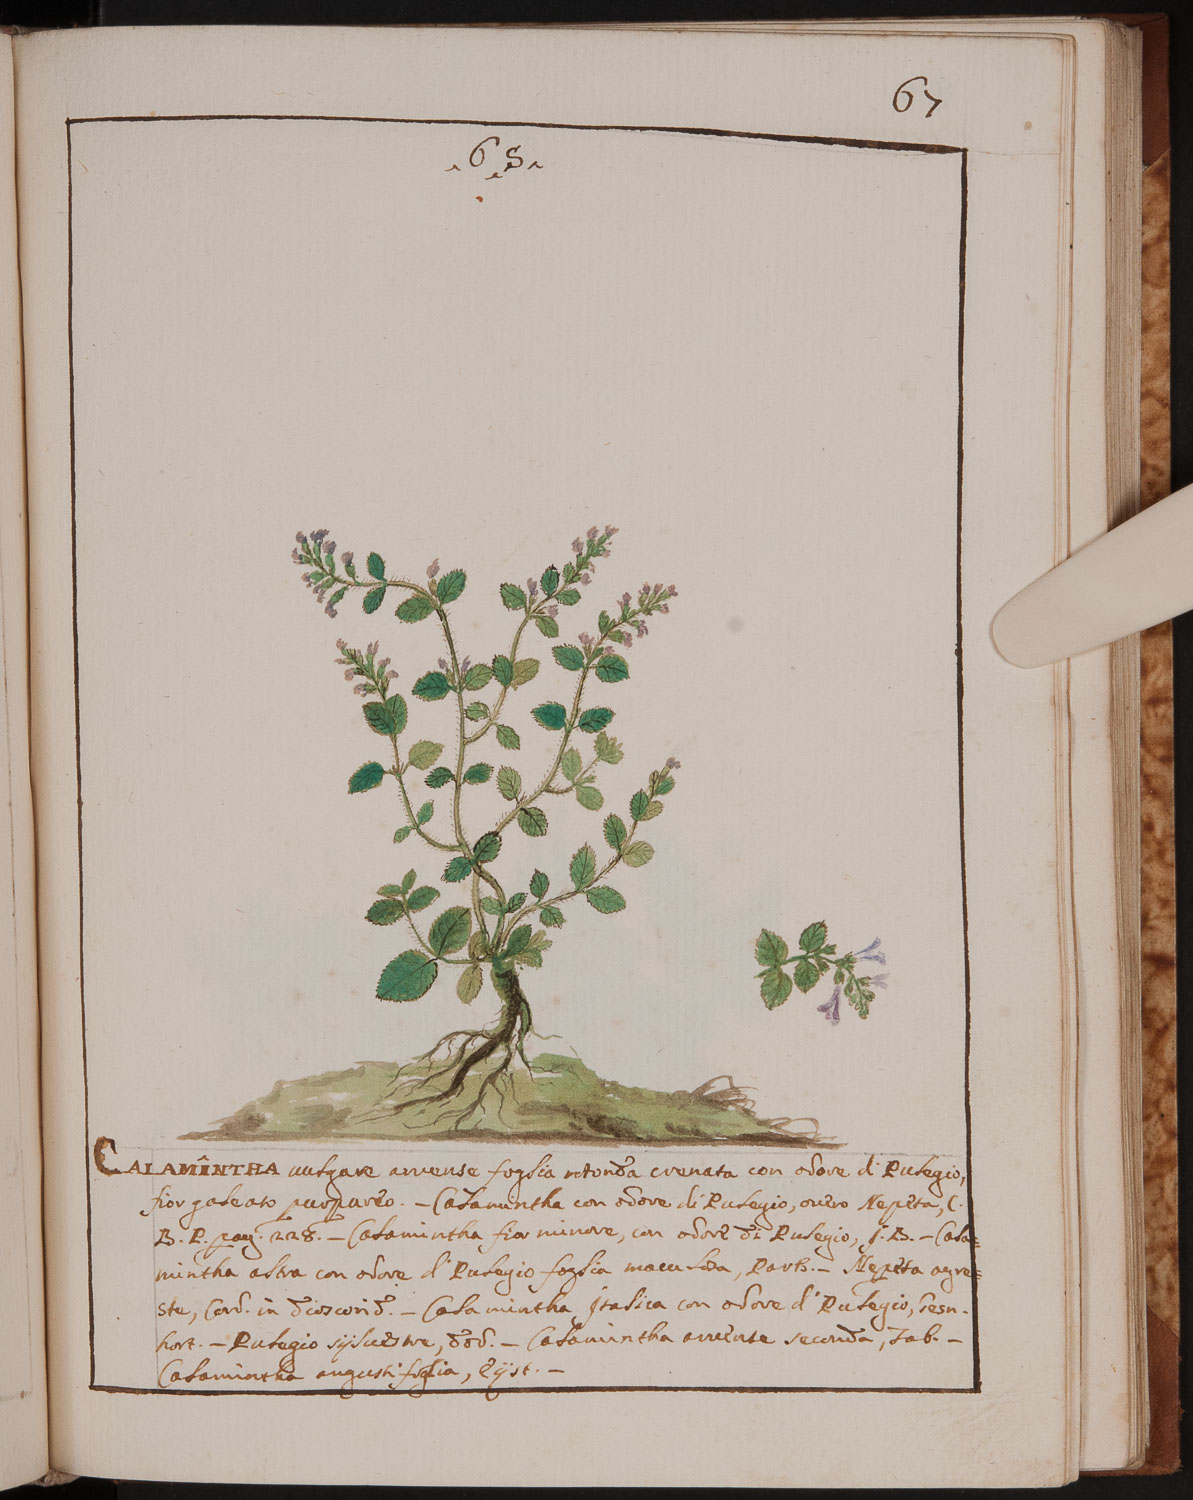 67
.65.
CALAMINTHA uulgare aruense foglia rotonda crenata con odore di Pulegio,
fior galeato purpureo. – Calamintha con odore di Pulegio, ouero Nepeta, C.
B. P. pag. 228. – Calamintha fior minore, con odore di Pulegio, J. B. – Cala=
mintha altra con odore d'Pulegio foglia maculosa, Park. – Nepeta agre=
ste, Cord. in dioscorid. – Calamintha Italica con odore d'Pulegio, Gesn.
hort. – Pulegio syluestre, dod. – Calamintha aruense seconda, Tab. –
Calamintha angustifoglia, Eyst. –